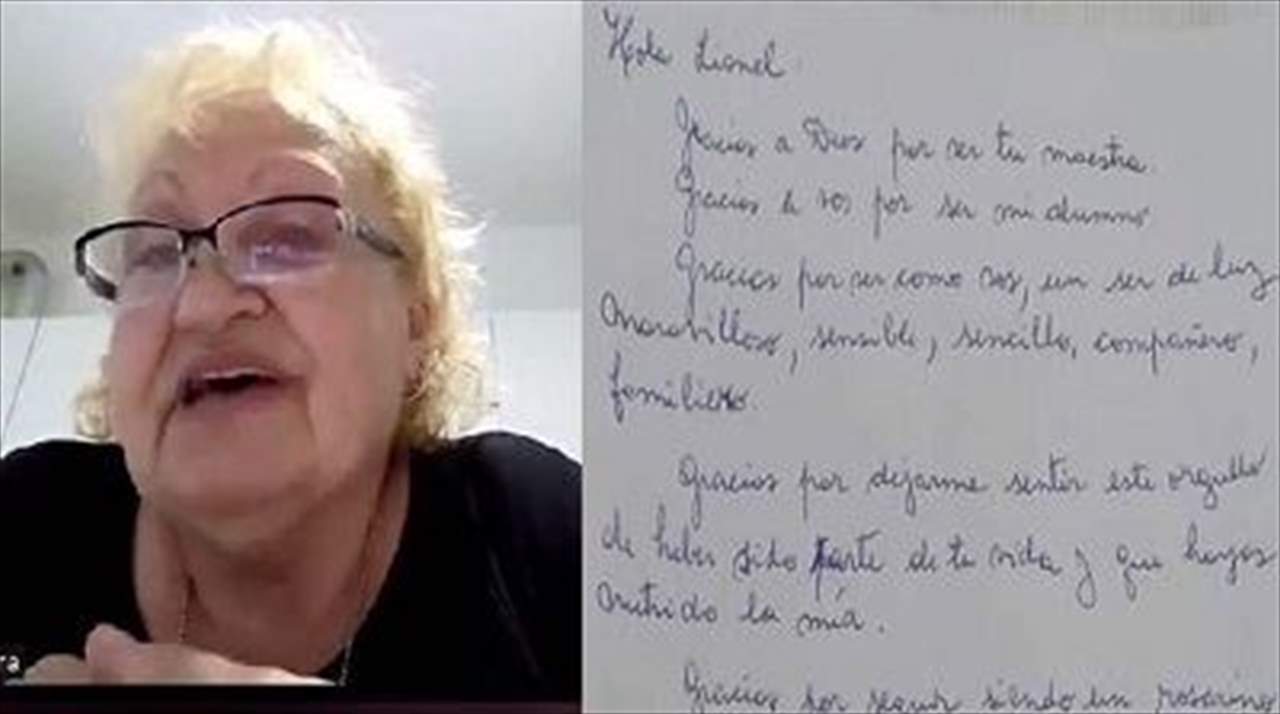 ra
Hola Lionel
Gracias a Dios por ser tu maestra.
Gracias a vos por ser mi alumno
Gracias por ser como sos, un ser de luz
maravilloso, sensible, sencillo, compañero,
familiero.
Gracias por dejarme sentir este orgullo
de haber sido parte de tu vida y que hayas
nutrido la mía.
Gracias por seguir siendo un rosarino